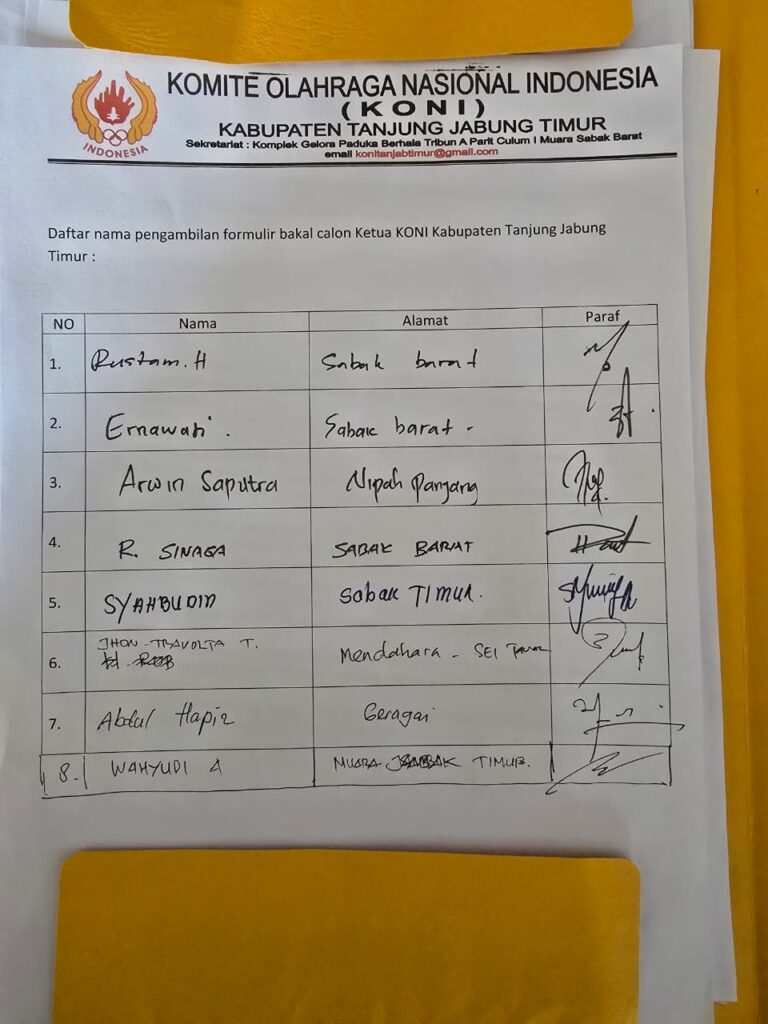 KOMITE OLAHRAGA NASIONAL INDONESIA
(KONI)
KABUPATEN TANJUNG JABUNG TIMUR
Sekretariat : Komplek Gelora Paduka Berhala Tribun A Parit Culum I Muara Sabak Barat
email konitanjabtimur@gmail.com
INDONESIA
Daftar nama pengambilan formulir bakal calon Ketua KONI Kabupaten Tanjung Jabung
Timur :
NO Nama Alamat Paraf
1. Rustam. H Sabak barat
2. Ernawati. Sabak barat -
3. Arwin Saputra Nipah Panjang
4. R. SINAGA SABAK BARAT
5. SYAHBUDIN Sabak TIMUR.
6. JHON-TRAVOLTA T. Mendahara - SEI
7. Abdul Hapiz Geragai
8. WAHYUDI A MUARA SABAK TIMUR.